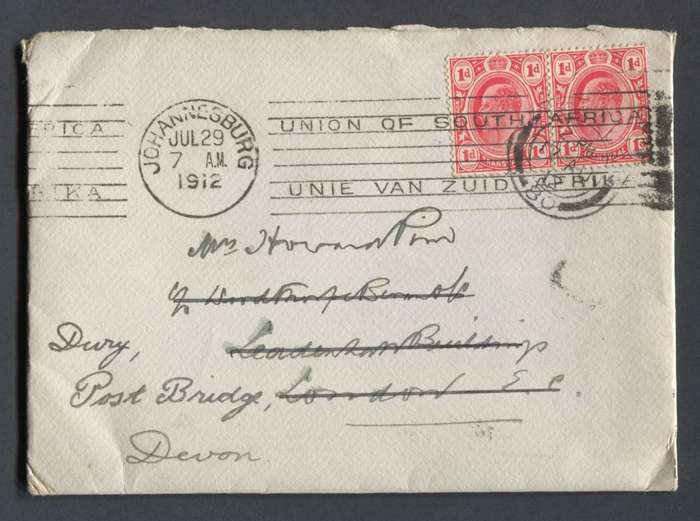 1d 1d
1d 1d
JOHANNESBURG
JUL 29
7 A.M.
1912
RICA
UNION OF SOUTH AFRICA
RIKA
UNIE VAN ZUID AFRIKA
Mrs Howard Pim
c/o
Leadenhall Buildings
London E.C.
Post Bridge,
Devon